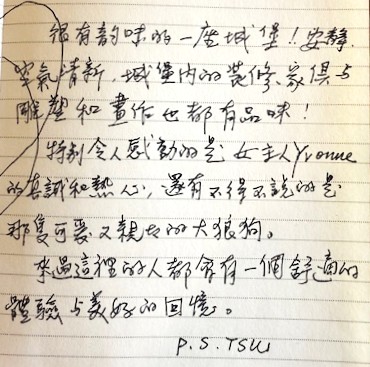 很有韵味的一座城堡！安靜.
空氣清新.城堡内的裝修、家俱与
雕塑和畫作也都有品味！
特别令人感動的是女主人Yvonne
的真誠和熱心，還有不得不說的是
那隻可爱又親切的大狼狗。
來過這裡的人都會有一個舒適的
體驗与美好的回憶。
P.S.TSU